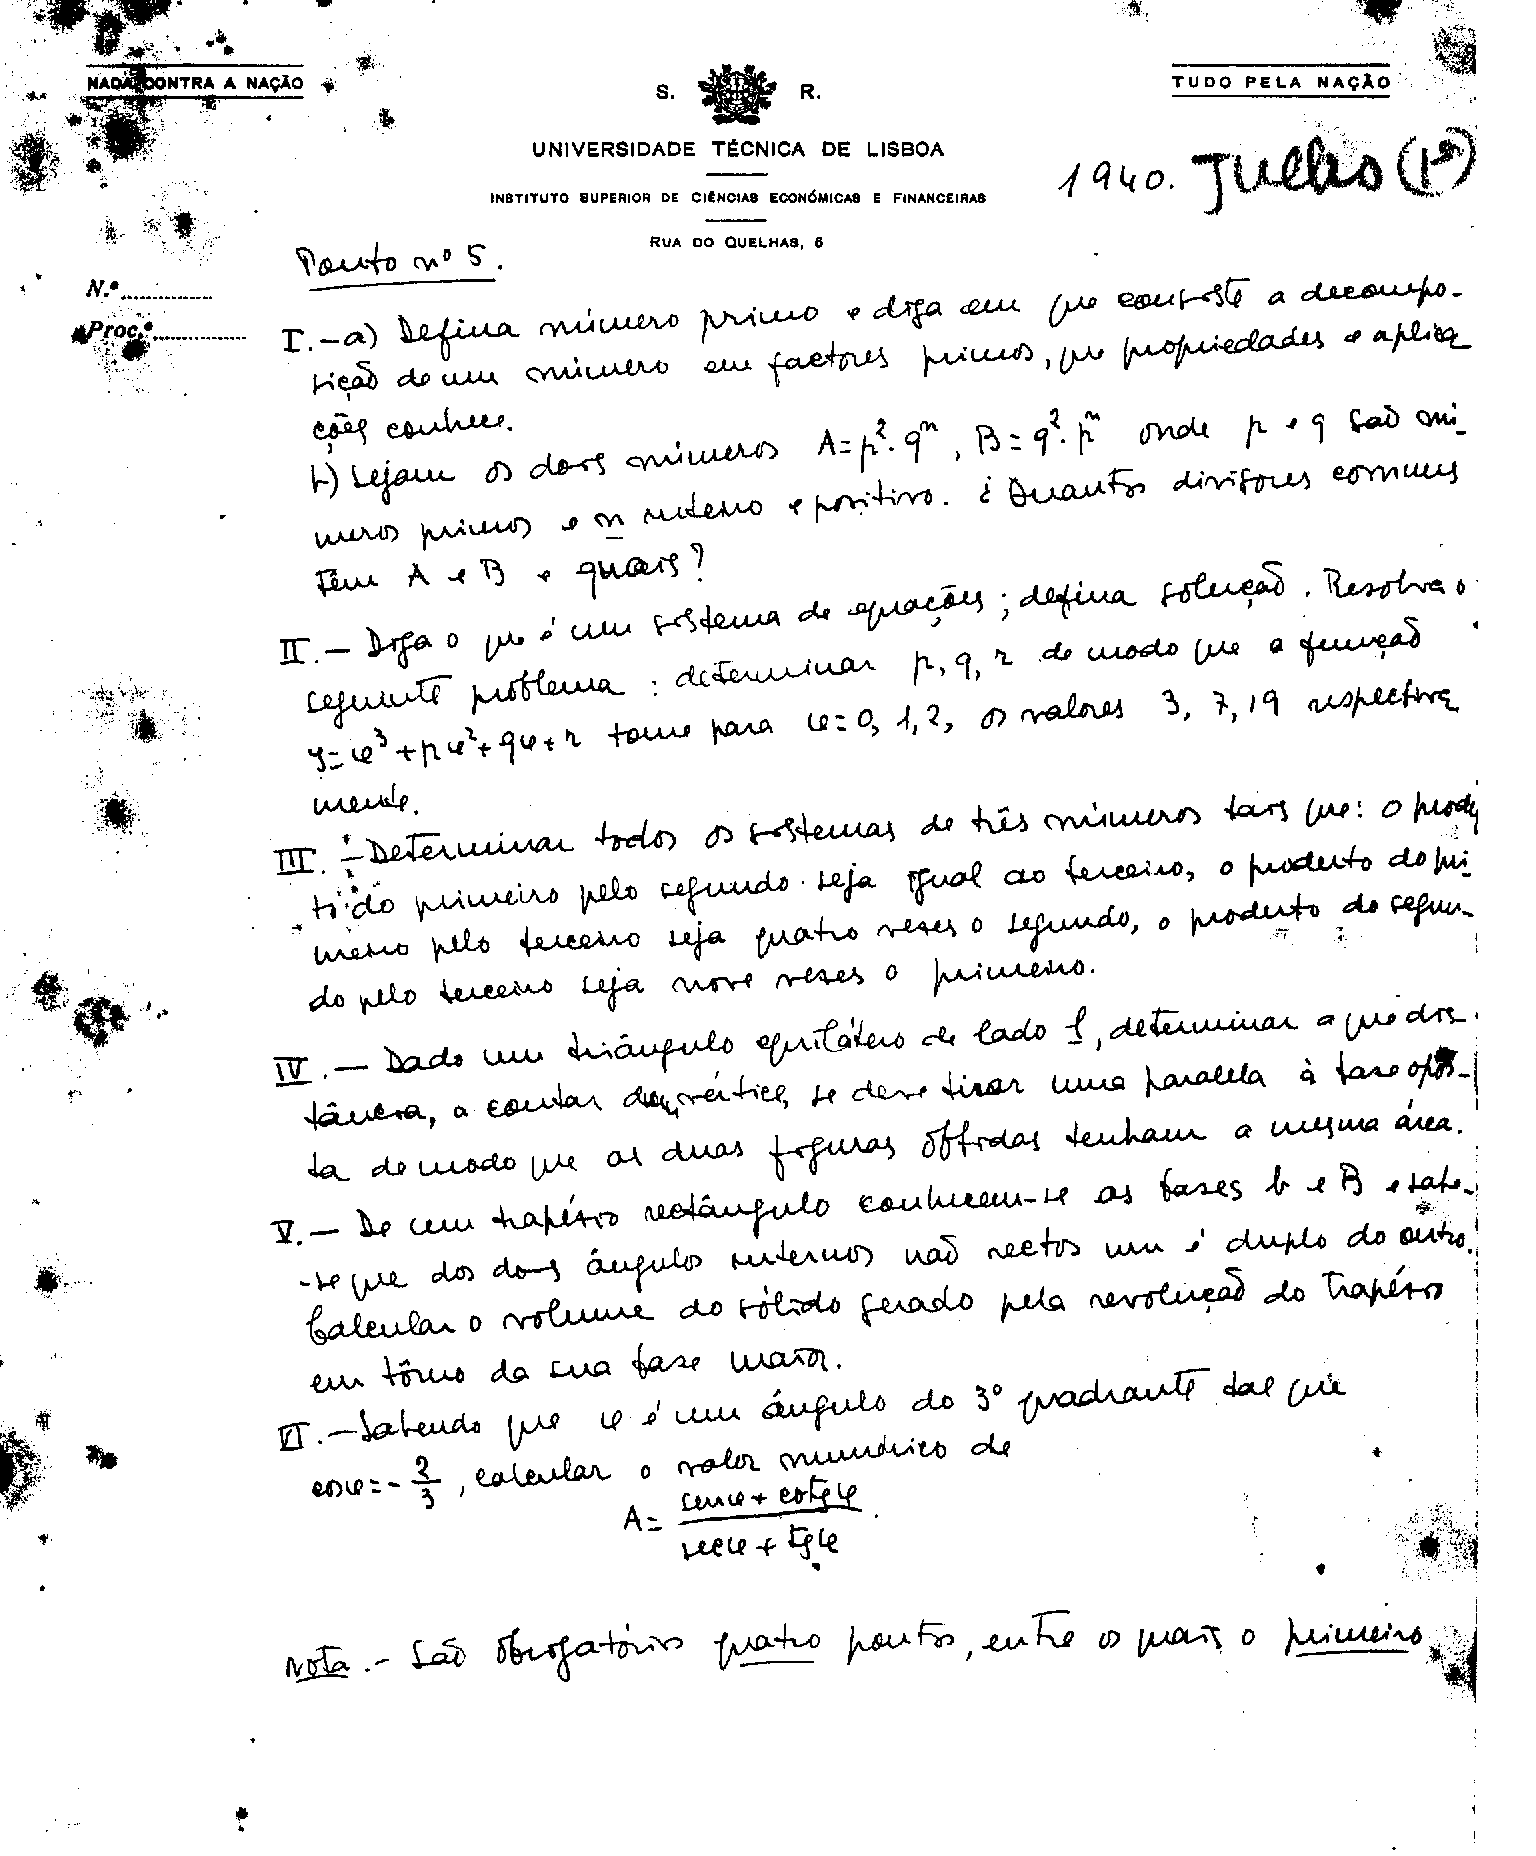 NADA CONTRA A NAÇÃO
S. R.
TUDO PELA NAÇÃO
UNIVERSIDADE TÉCNICA DE LISBOA
1940. Julho (1º)
INSTITUTO SUPERIOR DE CIÊNCIAS ECONÓMICAS E FINANCEIRAS
RUA DO QUELHAS, 6
Ponto nº 5.
N.º
Proc.º
I.- a) Defina número primo e diga em que consiste a decompo-
sição de um número em factores primos, que propriedades e aplica
ções conhece.
b) Sejam os dois números A=p².qⁿ, B=q².pⁿ onde p e q são nú-
meros primos e n inteiro e positivo. ¿ Quantos divisores comuns
têm A e B e quais?
II.- Diga o que é um sistema de equações; defina solução. Resolva o
seguinte problema: determinar p, q, r de modo que a função
y=x³+px²+qx+r tome para x=0, 1, 2, os valores 3, 7, 19 respectiva
mente.
III.- Determinar todos os sistemas de três números tais que: o produ
to do primeiro pelo segundo seja igual ao terceiro, o produto do pri-
meiro pelo terceiro seja quatro vezes o segundo, o produto do segun-
do pelo terceiro seja nove vezes o primeiro.
IV.- Dado um triângulo equilátero de lado l, determinar a que dis-
tância, a contar do vértice, se deve tirar uma paralela à base opos-
ta de modo que as duas figuras obtidas tenham a mesma área.
V.- De um trapézio rectângulo conhecem-se as bases b e B e sabe-
-se que dos dois ângulos internos não rectos um é duplo do outro.
Calcular o volume do sólido gerado pela revolução do trapézio
em tôrno da sua base maior.
VI.- Sabendo que x é um ângulo do 3º quadrante tal que
cosx=-2/3, calcular o valor numérico de
A= (senx + cotgx)/(secx + tgx)
Nota.- São obrigatórios quatro pontos, entre os quais o primeiro.